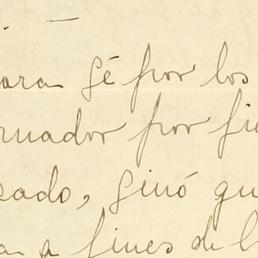 para gé por los
rnador por fi
sado, ginó qu
a fines de l